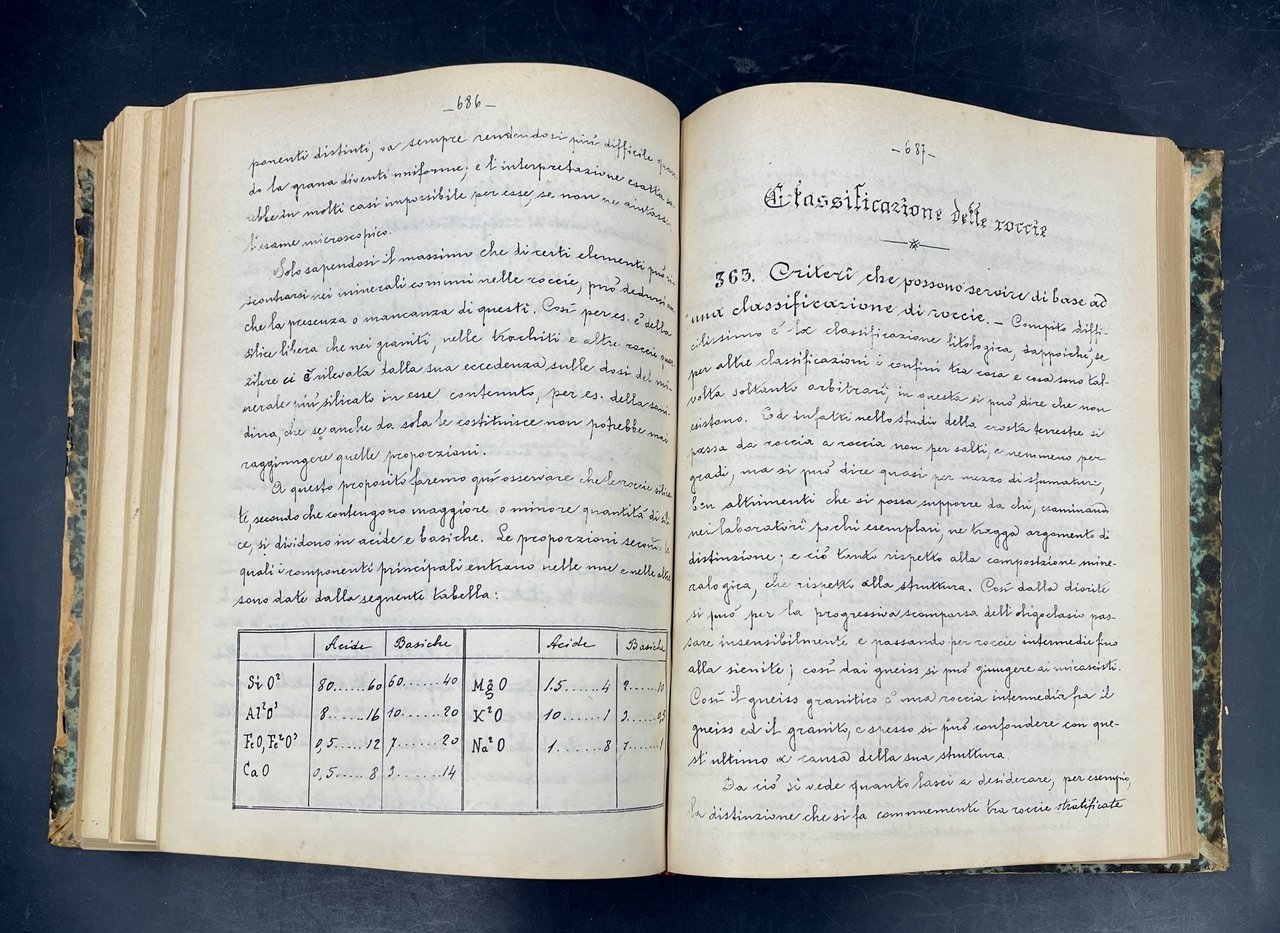 _686_
ponenti distinti, va sempre rendendosi più difficile quan-
do la grana diventi uniforme; e l'interpretazione esatta sa-
rebbe in molti casi impossibile per esse, se non ne aiutasse
l'esame microscopico.
Solo sapendosi il massimo che di certi elementi può ri-
scontrarsi nei minerali comuni nelle roccie, può dedursi an
che la presenza o mancanza di questi. Così per es. è della
silice libera che nei graniti, nelle trachiti e altre roccie quar
zifere ci è rilevata dalla sua eccedenza sulle dosi del mi-
nerale più silicato in esse contenuto, per es. della sani-
dina, che se anche da sola le costituisce non potrebbe mai
raggiungere quelle proporzioni.
A questo proposito faremo quì osservare che le roccie silica-
te, secondo che contengono maggiore o minore quantità di sili-
ce, si dividono in acide e basiche. Le proporzioni secondo le
quali i componenti principali entrano nelle une e nelle altre
sono date dalla seguente tabella:
Acide Basiche Acide Basiche
SiO² 80......60 60......40 MgO 1.5......4 2......10
Al²O³ 8......16 10......20 K²O 10......1 3......0,5
FeO, Fe²O³ 0,5......12 7......20 Na²O 1......8 1......1
CaO 0,5......8 3......14
_687_
Classificazione delle roccie
363. Criterî che possono servire di base ad
una classificazione di roccie. - Compito diffi-
cilissimo è la classificazione litologica, dappoichè, se
per altre classificazioni i confini tra cosa e cosa sono tal-
volta soltanto arbitrarî, in questa si può dire che non
esistano. Ed infatti nello studio della crosta terrestre si
passa da roccia a roccia non per salti, e nemmeno per
gradi, ma si può dire quasi per mezzo di sfumature,
ben altrimenti che si possa supporre da chi, esaminando
nei laboratorî pochi esemplari, ne tragga argomento di
distinzione; e ciò tanto rispetto alla composizione mine-
ralogica, che rispetto alla struttura. Così dalla diorite
si può per la progressiva scomparsa dell'oligoclasio pas-
sare insensibilmente e passando per roccie intermedie fino
alla sienite; così dai gneiss si può giungere ai micascisti.
Così il gneiss granitico è una roccia intermedia fra il
gneiss ed il granito, e spesso si può confondere con que-
st'ultimo a causa della sua struttura.
Da ciò si vede quanto lasci a desiderare, per esempio,
la distinzione che si fa comunemente tra roccie stratificate